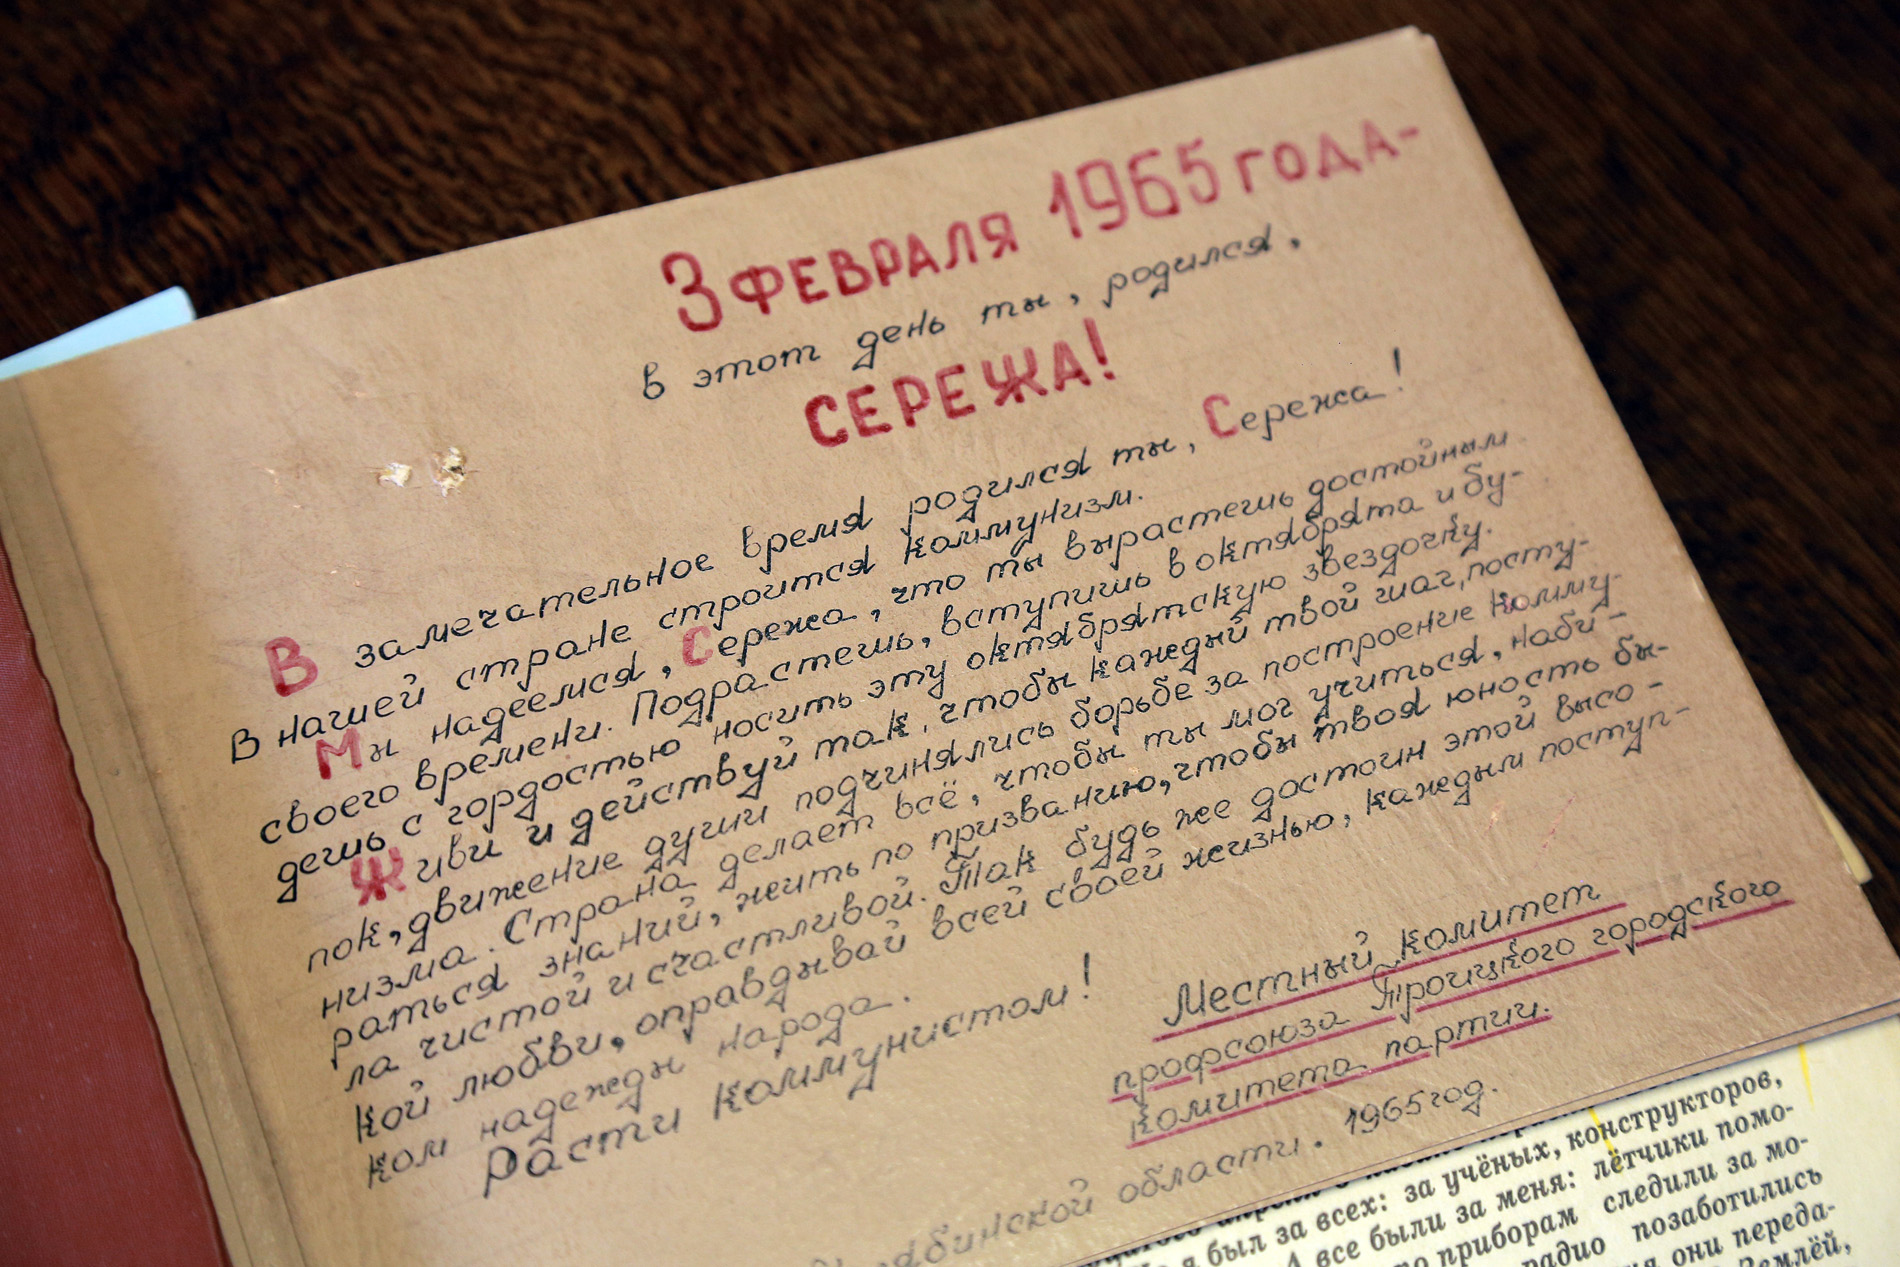 3 ФЕВРАЛЯ 1965 ГОДА-
в этот день ты, родился,
СЕРЕЖА!
В замечательное время родился ты, Сережа!
В нашей стране строится коммунизм.
Мы надеемся, Сережа, что ты вырастешь достойным
своего времени. Подрастешь, вступишь в октябрята и бу-
дешь с гордостью носить эту октябрятскую звездочку.
Живи и действуй так, чтобы каждый твой шаг, посту-
пок, движение души подчинялись борьбе за построение комму-
низма. Страна делает всё, чтобы ты мог учиться, наби-
раться знаний, жить по призванию, чтобы твоя юность бы-
ла чистой и счастливой. Так будь же достоин этой высо-
кой любви, оправдывай всей своей жизнью, каждым поступ-
ком надежды народа.
Расти коммунистом!
Местный комитет
профсоюза Троицкого городского
комитета партии.
области. 1965 год.
за всех: за учёных, конструкторов,
я был за меня: лётчики помо-
А все были приборам следили за мо-
радио позаботились
они переда-
Землёй,